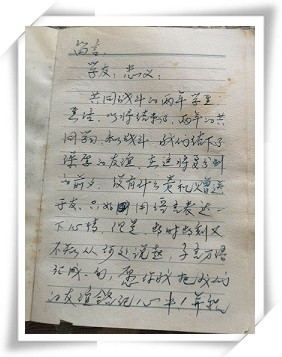 留言:
学友: 忠义:
共同战斗的两年学生
生活, 以将结束了, 两年的共
同学习, 和战斗, 我们结下了
深厚的友谊, 在这将要分别
的前夕, 没有什么贵礼赠送
于友, 只好用语言表达一
下心情, 但是, 此时此刻又
不知从何处说起, 千言万语
汇成一句, 愿你我把我们
的友谊铭记心中!